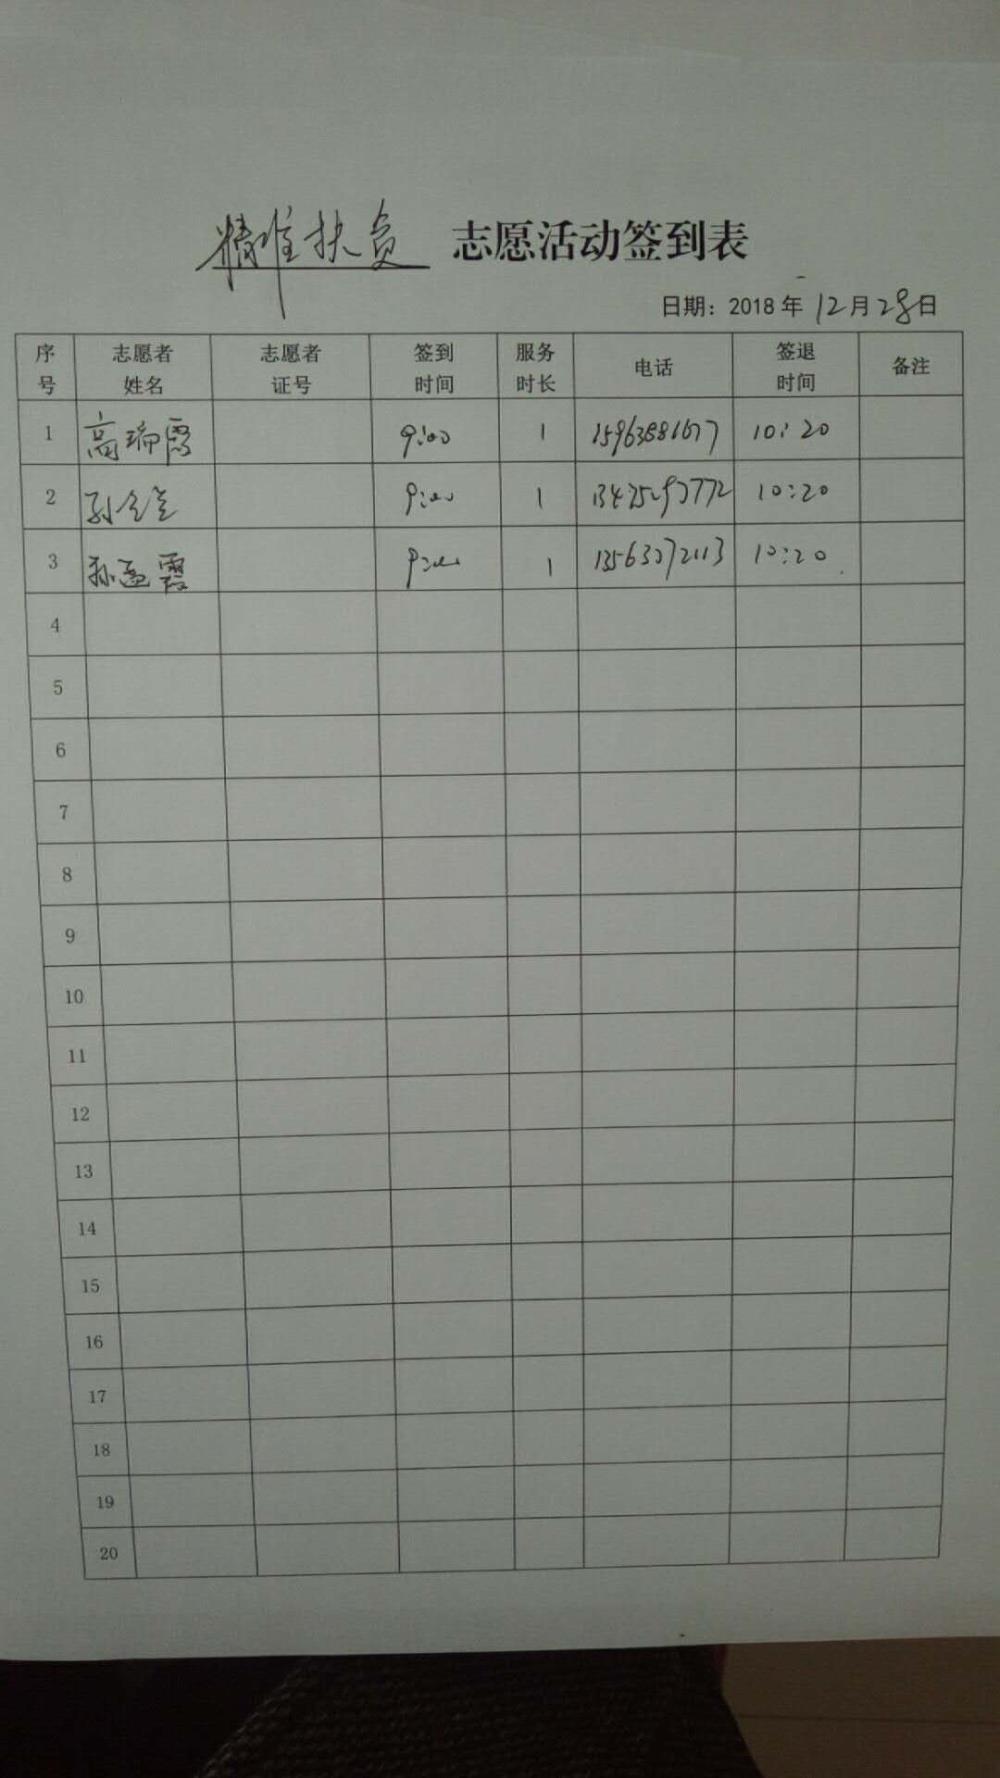 精准扶贫 志愿活动签到表
日期：2018年12月28日
序号 志愿者姓名 志愿者证号 签到时间 服务时长 电话 签退时间 备注
1 高瑞霞 9:00 1 15963881677 10:20
2 9:00 1 10:20
3 9:00 1 10:20
4
5
6
7
8
9
10
11
12
13
14
15
16
17
18
19
20